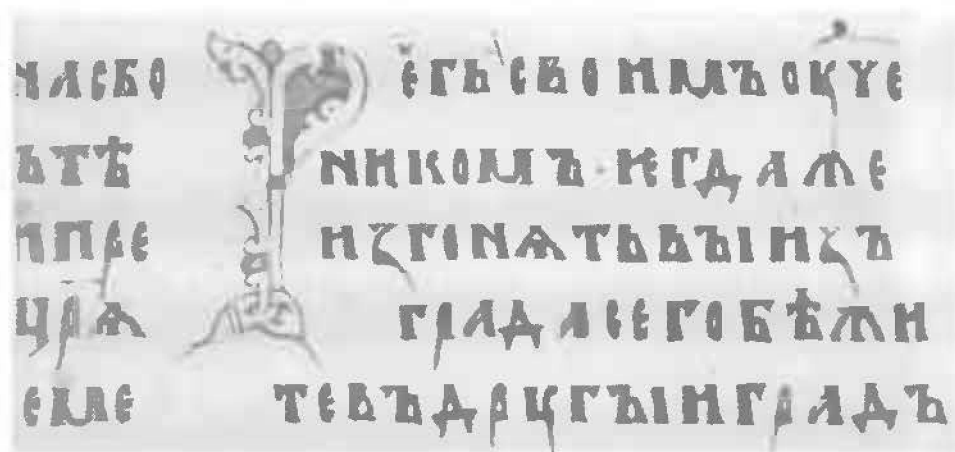 насбо
ътѣ
ипре
црѧ
емле
Регьсвоимъоуче
никомъ·ѥгдаже
изгонѧтьвъıизъ
градасегобѣжи
тевъдругъıиградъ